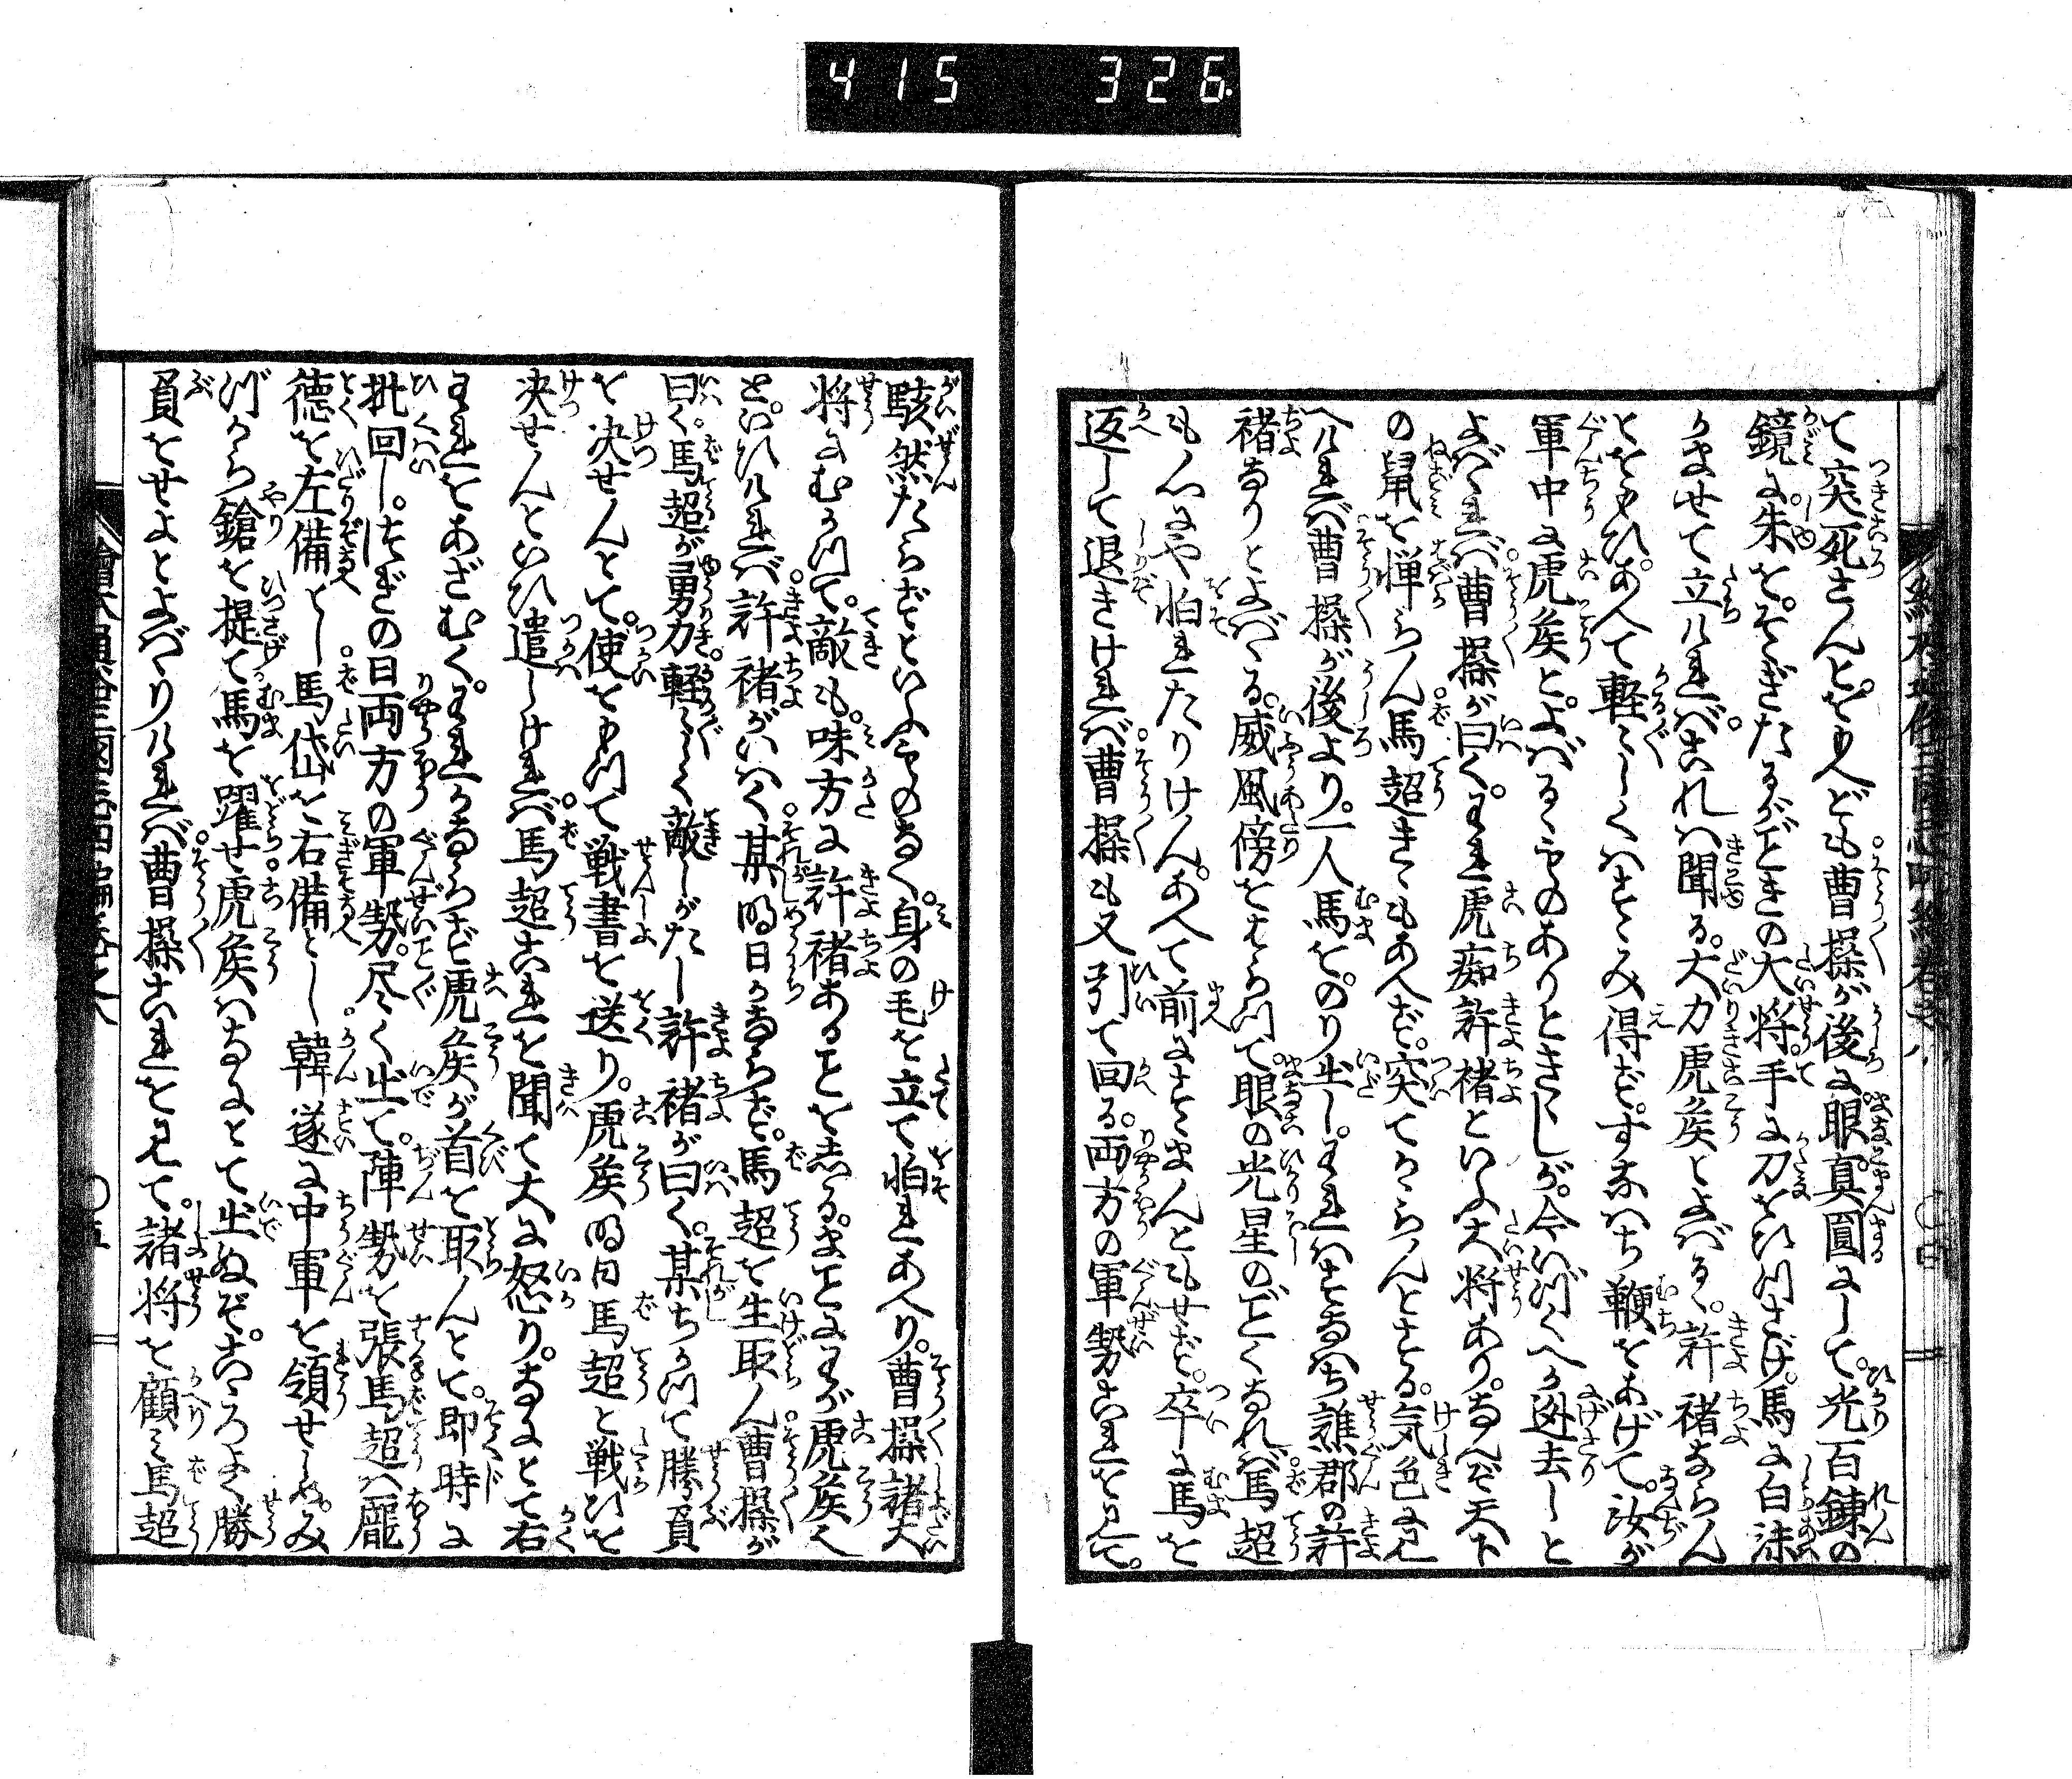 415 326
て突死さんと。をもへども曹操が後に眼真圓にして。光百錬の
鏡に。朱をそゝぎたるがごときの大将。手に刀をひつさげ。馬に白沫
かませて立ければ。これハ聞る。大力虎矦とよばるゝ。許褚ならん
とをもひ。あへて軽〳〵しくハすゝみ得ず。すなハち鞭をあげて。汝が
軍中に虎矦と。よばるゝものありときゝしが。今いづくへか迯去しと
よバゝれバ。曹操が曰く。われ虎痴許褚といふ大将あり。なんぞ天下
の鼠を憚らん。馬超きくもあへず。突てかゝらんとする。気色に見
へければ曹操が後より。一人馬をのり出し。われハすなハち譙郡の許
褚なりとよバゝる。威風傍をはらつて。眼の光星のごとくなれバ。馬超
も心にや怕れたりけん。あへて前にすゝまんともせず。卒に馬を
返して退きければ。曹操も又引て回る。両方の軍勢これを見て。
駭然たらずといふものなく。身の毛を立て怕れあへり。曹操諸大
将にむかつて。敵も。味方に許褚あることを志る。まことにわが虎矦へ
と。いひければ。許褚がいはく。某明日かならず。馬超を生取ん曹操が
曰く。馬超が勇力。軽〳〵しく敵しがたし許褚が曰く。某ちかつて勝負
を决せんとて。使をもつて戦書を送り。虎矦明日馬超と戦ひを
决せんといひ遣しければ。馬超これを聞て大に怒り。なにとて右
われをあざむく。われかならず虎矦が首を取んとて。即時に
批回し。つぎの日両方の軍勢。尽く出て。陣勢を張馬超ハ龐
徳を左備とし。馬岱を右備とし。韓遂に中軍を領せしめ。み
づから鎗を提て馬を躍せ。虎矦ハなにとて出ぬぞ。こゝろよく勝
負をせよとよバゝりければ。曹操これを見て。諸将を顧ミ馬超